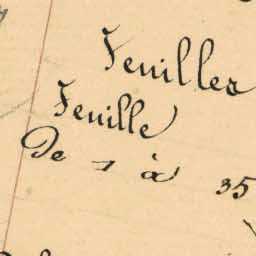 Feuilles
Feuille
De 1 à 35